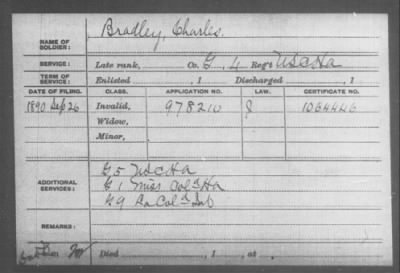 NAME OF SOLDIER: Bradley, Charles.
SERVICE: Late rank, Co. G, 4 Reg't U S C H A
TERM OF SERVICE: Enlisted , 1 Discharged , 1
DATE OF FILING. CLASS. APPLICATION NO. LAW. CERTIFICATE NO.
1890 Sep 26 Invalid, 978210 J 1064446
Widow,
Minor,
ADDITIONAL SERVICES: G 5 U S C H A
G 1 Miss Cold H A
G 9 La Cold Inf
REMARKS:
Died , 1 , at